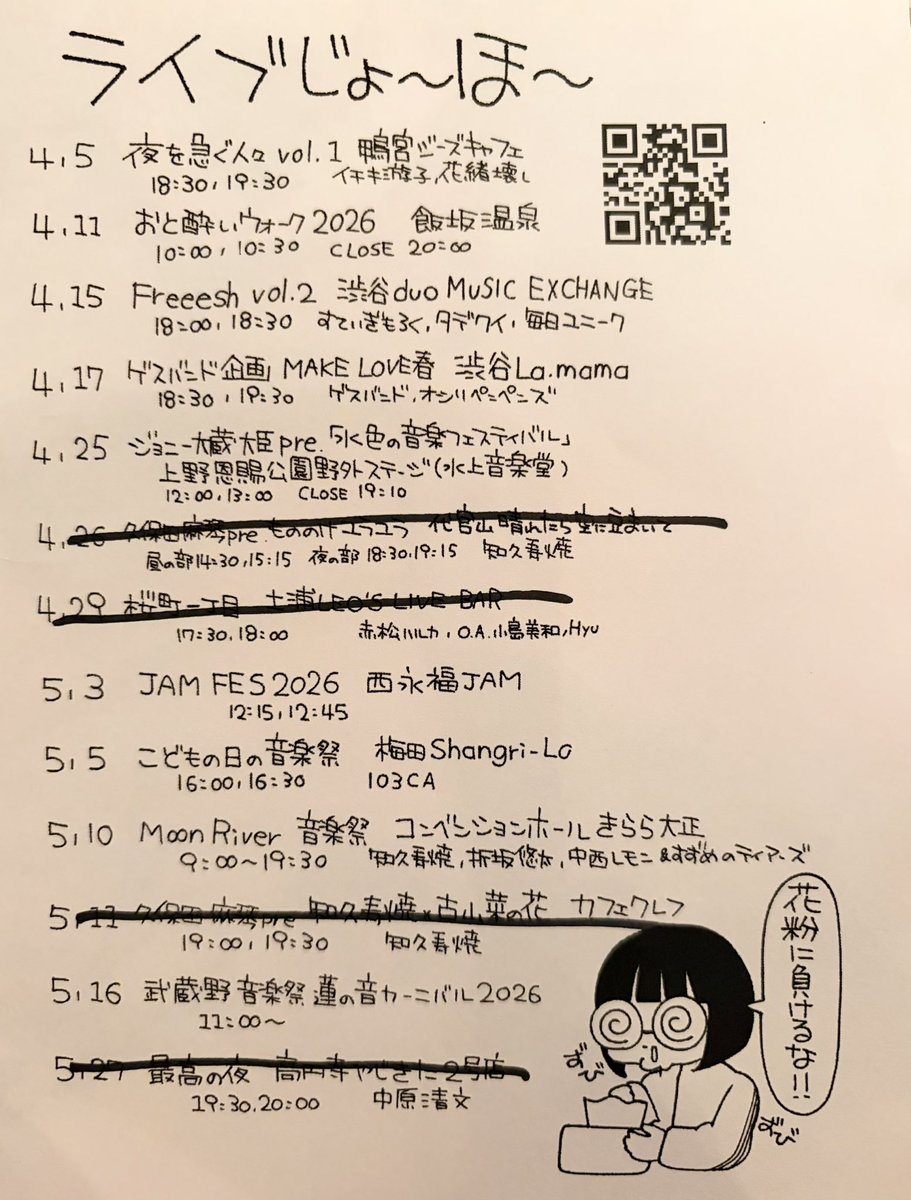 ライブじょ〜ほ〜
4.5 夜を急ぐ人々 vol.1 鴨宮ジーズキャフェ
18:30, 19:30 イチキ游子, 花緒壊し
4.11 おと酔いウォーク2026 飯坂温泉
10:00, 10:30 CLOSE 20:00
4.15 Freeesh vol.2 渋谷duo MUSIC EXCHANGE
18:00, 18:30 すていぎもろく, タデクイ, 毎日ユニーク
4.17 ゲスバンド企画 MAKE LOVE春 渋谷La.mama
18:30, 19:30 ゲスバンド, オシリペンペンズ
4.25 ジョニー大蔵大臣pre.「水色の音楽フェスティバル」
上野恩賜公園野外ステージ(水上音楽堂)
12:00, 13:00 CLOSE 19:10
4.26 久保田麻琴pre. もののけユラユラ 代官山晴れたら空に豆まいて
昼の部14:30, 15:15 夜の部 18:30, 19:15 知久寿焼
4.29 桜町一丁目 土浦LEO'S LIVE BAR
17:30, 18:00 赤松ハルカ, O.A.小島美和, Hyu
5.3 JAM FES 2026 西永福JAM
12:15, 12:45
5.5 こどもの日の音楽祭 梅田Shangri-La
16:00, 16:30 103CA
5.10 Moon River 音楽祭 コンベンションホールきらら大正
9:00〜19:30 知久寿焼, 折坂悠太, 中西レモン&すずめのティアーズ
5.11 久保田麻琴pre 知久寿焼×古山菜の花 カフェクレフ
19:00, 19:30 知久寿焼
5.16 武蔵野音楽祭 蓮の音カーニバル2026
11:00〜
5.27 最高の夜 高円寺やしきた2号店
19:30, 20:00 中原清文
花粉に負けるな!!
ずび
ずび